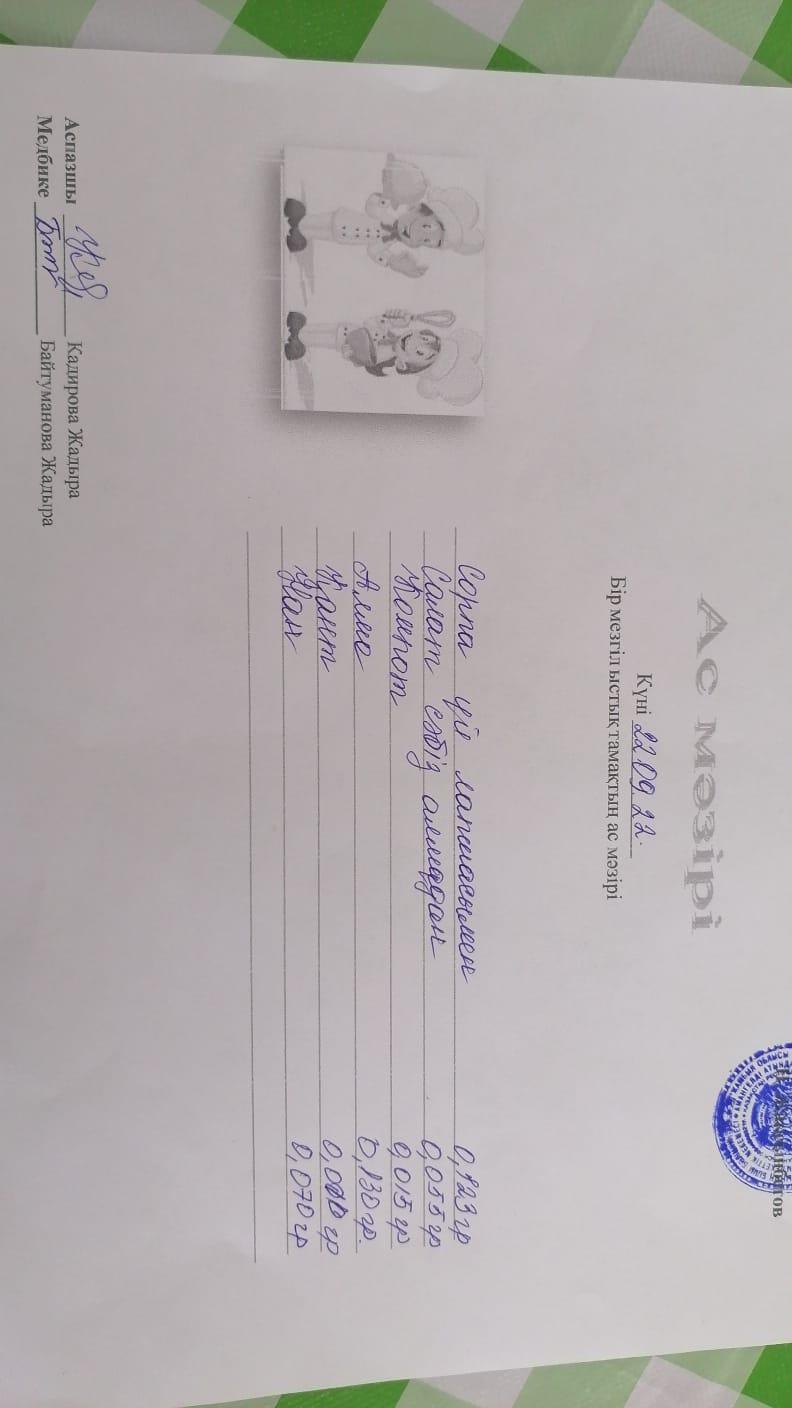 Ас мәзірі
Күні 22.09.22.
Бір мезгіл ыстық тамақтың ас мәзірі
Сорпа үй лапшасымен 0,123 гр
Салат сәбіз алмадан 0,055 гр
Компот 0,015 гр
Алма 0,130 гр.
Қант гр
Нан 0,070 гр
Аспазшы Кадирова Жадыра
Медбике Байтуманова Жадыра